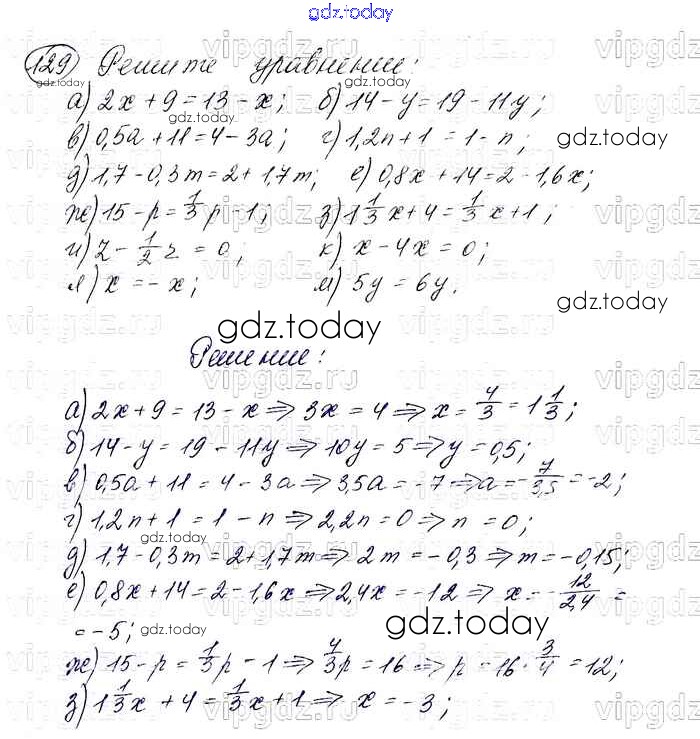 gdz.today
129) Решите уравнение:
а) 2x + 9 = 13 - x; б) 14 - y = 19 - 11y;
в) 0,5a + 11 = 4 - 3a; г) 1,2n + 1 = 1 - n;
д) 1,7 - 0,3m = 2 + 1,7m; е) 0,8x + 14 = 2 - 1,6x;
ж) 15 - p = 1/3 p - 1; з) 1 1/3 x + 4 = 1/3 x + 1;
и) z - 1/2 z = 0; к) x - 4x = 0;
л) x = -x; м) 5y = 6y.
gdz.today
Решение:
а) 2x + 9 = 13 - x => 3x = 4 => x = 4/3 = 1 1/3;
б) 14 - y = 19 - 11y => 10y = 5 => y = 0,5;
в) 0,5a + 11 = 4 - 3a => 3,5a = -7 => a = -7/3,5 = -2;
г) 1,2n + 1 = 1 - n => 2,2n = 0 => n = 0;
д) 1,7 - 0,3m = 2 + 1,7m => 2m = -0,3 => m = -0,15;
е) 0,8x + 14 = 2 - 1,6x => 2,4x = -12 => x = -12/2,4 =
= -5;
ж) 15 - p = 1/3 p - 1 => 4/3 p = 16 => p = 16 · 3/4 = 12;
з) 1 1/3 x + 4 = 1/3 x + 1 => x = -3;